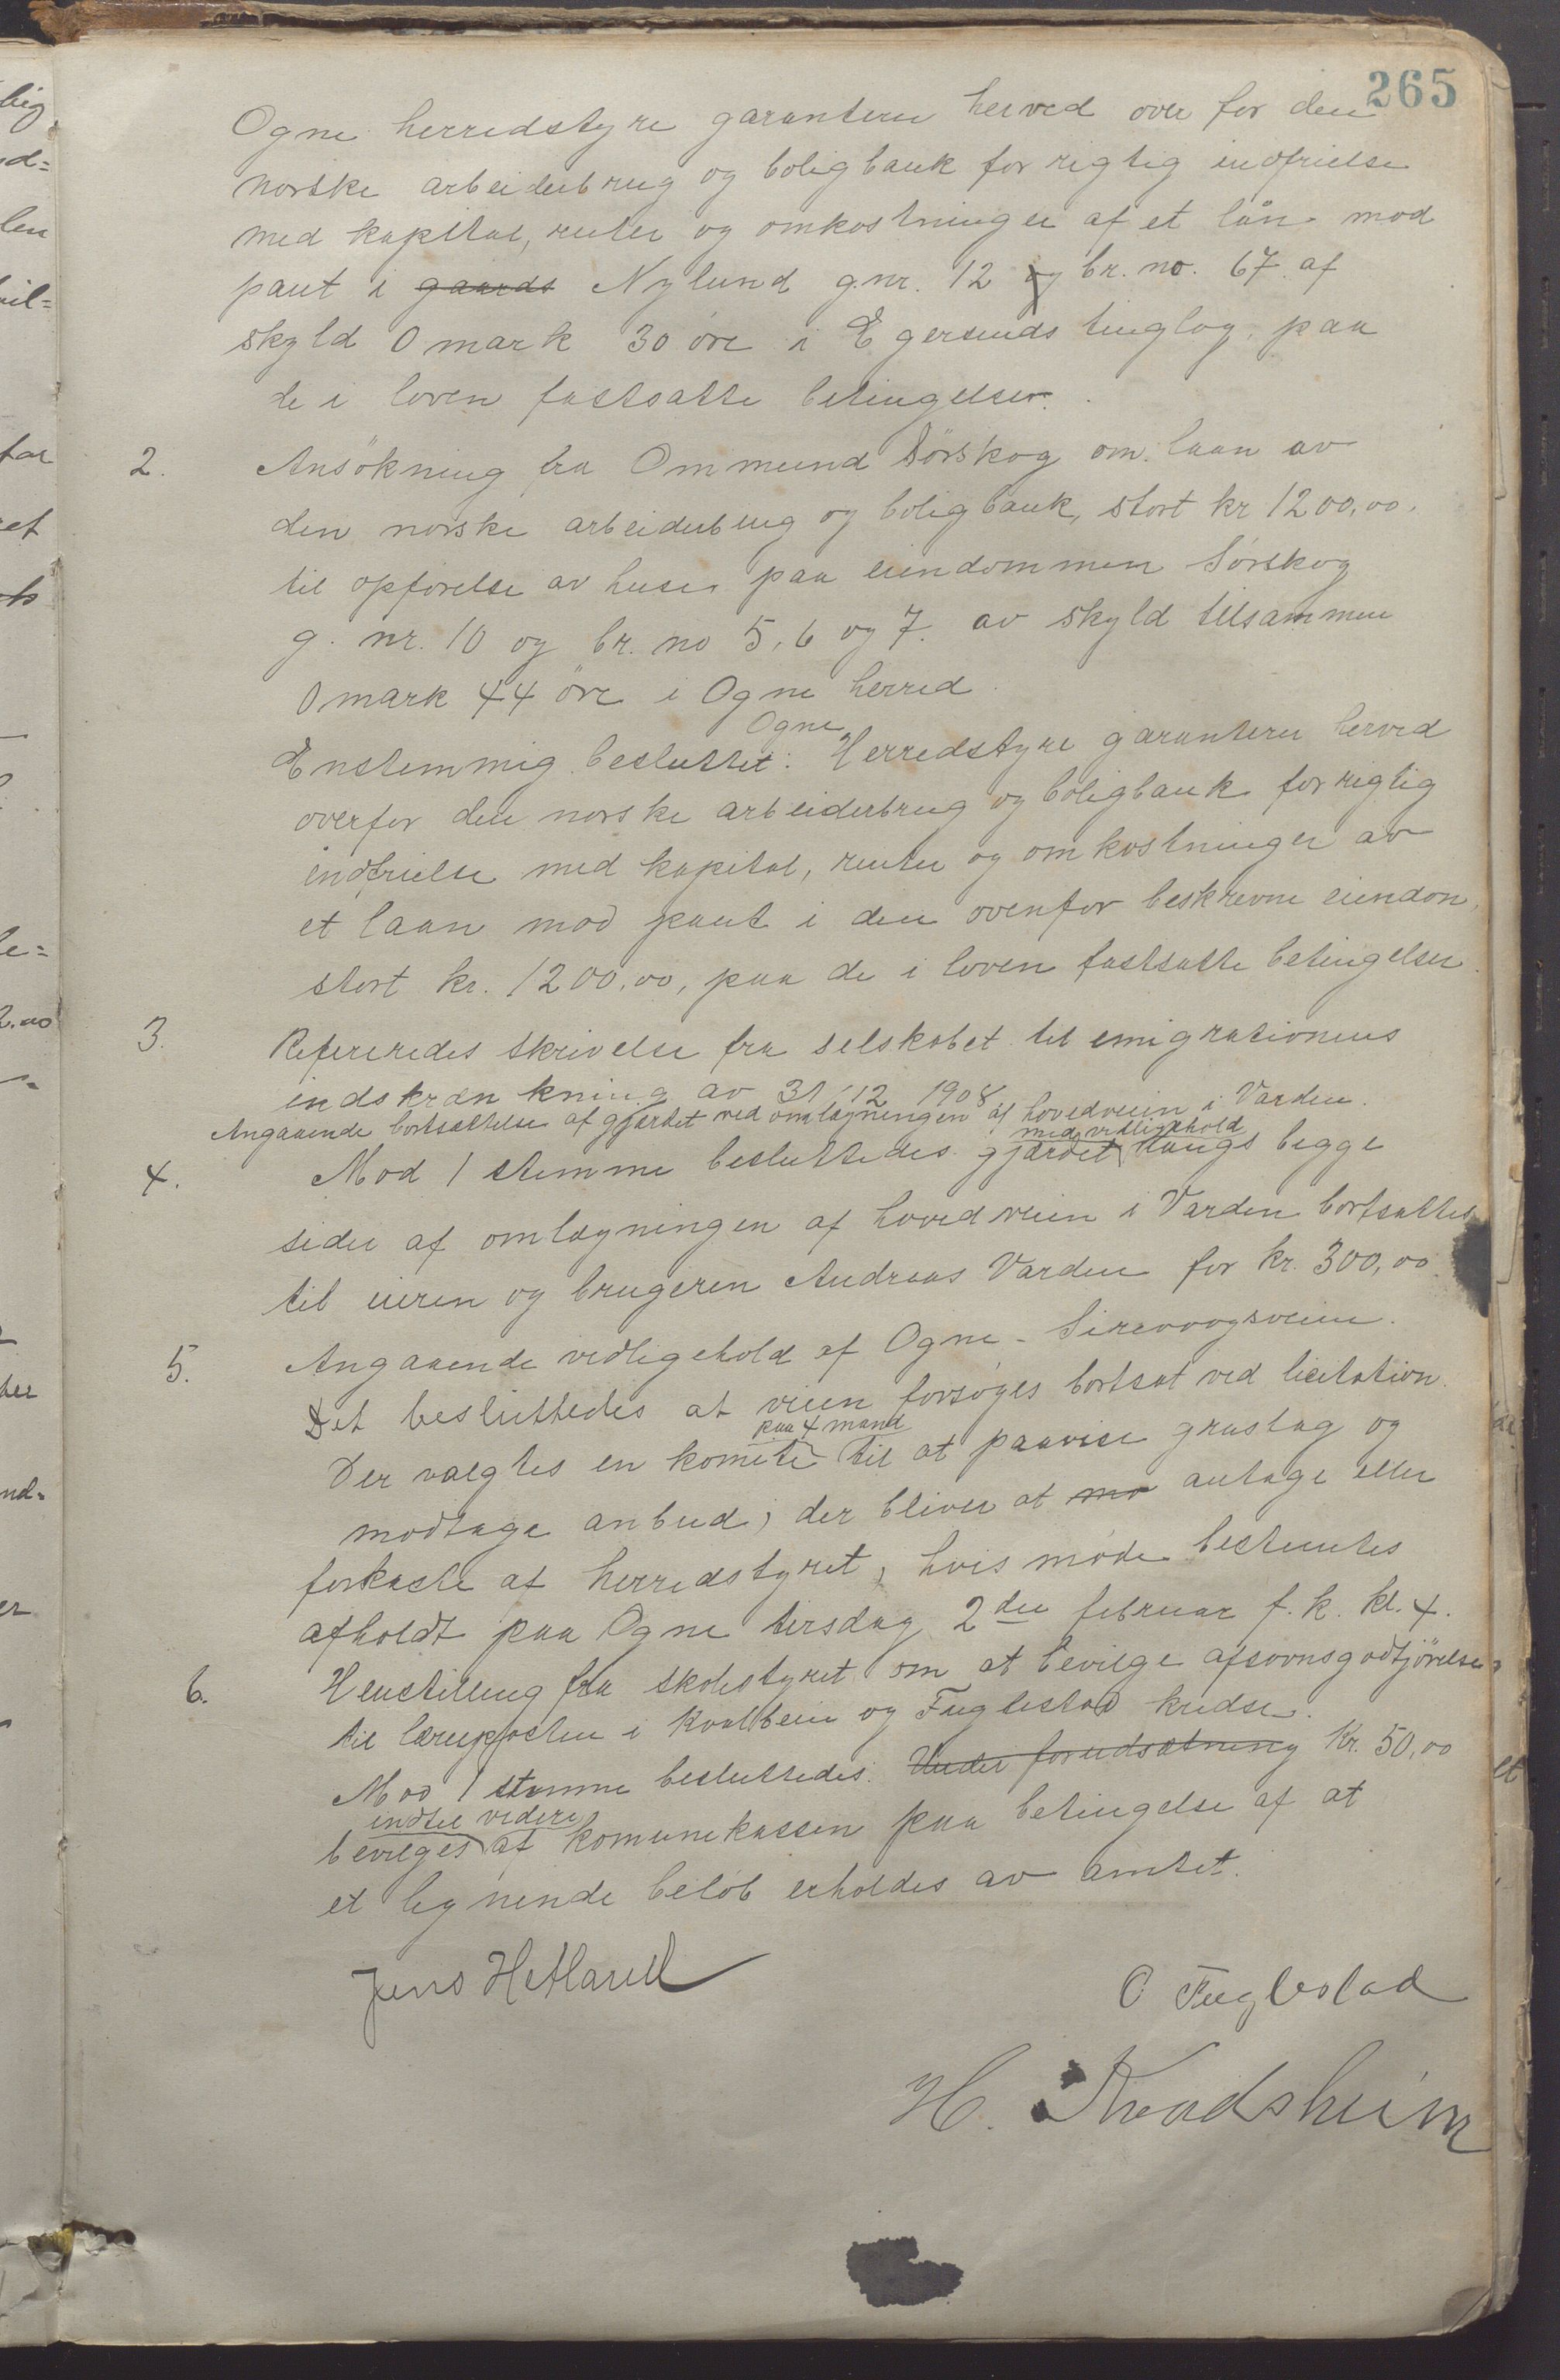 265
Ogne herredstyre garanterer herved over for den
norske arbeiderbrug og boligbank for rigtig indfrielse
med kapital, renter og omkostninger af et lån mod
pant i gaards Nylund g.nr. 12 og br. no. 67 af
skyld 0 mark 30 öre i Egersunds tinglag, paa
de i loven fastsatte betingelser.
2. Ansökning fra Ommund Sörskog om laan av
den norske arbeiderbrug og boligbank, stort kr 1200,00.
til opförelse av huse paa eiendommen Sörskog
g. nr. 10 og br. no 5, 6 og 7. av skyld tilsammen
0 mark 44 öre i Ogne herred.
Ogne
Enstemmig besluttet: Herredstyre garanterer herved
overfor den norske arbeiderbrug og boligbank for rigtig
indfrielse med kapital, renter og omkostninger av
et laan mod pant i den ovenfor beskrevne eiendom,
stort kr. 1200,00, paa de i loven fastsatte betingelser.
3. Refereredes skrivelse fra selskabet til emigrationens
indskrænkning av 31/12 1908
Angaaende bortsættelse af gjærdet ved omlægningen af hovedveien i Varden.
med vedligehold
4. Mod 1 stemme besluttedes gjærdet langs begge
sider af omlægningen af hovedveien i Varden bortsattes
til eieren og brugeren Andreas Varden for kr. 300,00
5. Angaaende vedligehold af Ogne - Sirevaagsveien.
Det besluttedes at veien forsöges bortsat ved licitation.
paa 4 mand
Der valgtes en komite til at paavise grustag og
modtage anbud; der bliver at mo antage eller
forkaste af herredstyret, hvis möde bestemtes
afholdt paa Ogne tirsdag 2den februar f. k. kl. 4.
6. Henstilling fra skolestyret om at bevilge afsavnsgodtjörelse
til lærerposten i Kvalbein og Fuglestad kredse.
Mod 1 stemme besluttedes: Under forudsætning Kr. 50,00
indtil videre
bevilges af komunekassen paa betingelse af at
et lignende belöb erholdes av amtet.
Jens Hetland
O Fuglestad
H. Kvadsheim